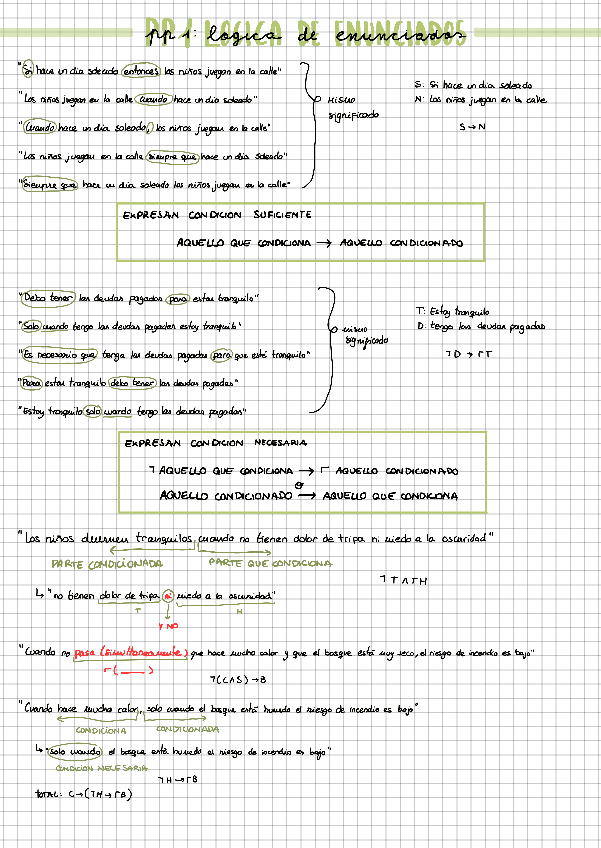 PP1: LOGICA DE ENUNCIADOS
"Si hace un día soleado entonces los niños juegan en la calle"
"Los niños juegan en la calle cuando hace un día soleado"
"Cuando hace un día soleado, los niños juegan en la calle"
"Los niños juegan en la calle siempre que hace un día soleado"
"Siempre que hace un día soleado los niños juegan en la calle"
MISMO
significado
S: Si hace un día soleado
N: Los niños juegan en la calle
S → N
EXPRESAN CONDICION SUFICIENTE
AQUELLO QUE CONDICIONA → AQUELLO CONDICIONADO
"Debo tener las deudas pagadas para estar tranquilo"
"Solo cuando tengo las deudas pagadas estoy tranquilo"
"Es necesario que tenga las deudas pagadas para que esté tranquilo"
"Para estar tranquilo debo tener las deudas pagadas"
"Estoy tranquilo solo cuando tengo las deudas pagadas"
mismo
significado
T: Estoy tranquilo
D: tengo las deudas pagadas
¬D → ¬T
EXPRESAN CONDICION NECESARIA
¬ AQUELLO QUE CONDICIONA → ¬ AQUELLO CONDICIONADO
o
AQUELLO CONDICIONADO → AQUELLO QUE CONDICIONA
"Los niños duermen tranquilos, cuando no tienen dolor de tripa ni miedo a la oscuridad"
PARTE CONDICIONADA PARTE QUE CONDICIONA
¬T ∧ ¬H
↳ "no tienen dolor de tripa ni miedo a la oscuridad"
T H
Y NO
"Cuando no pasa (simultáneamente) que hace mucho calor y que el bosque está muy seco, el riesgo de incendio es bajo"
¬(____)
¬(C∧S) → B
"Cuando hace mucho calor, solo cuando el bosque está húmedo el riesgo de incendio es bajo"
CONDICIONA CONDICIONADA
↳ "solo cuando el bosque está húmedo el riesgo de incendio es bajo"
CONDICION NECESARIA
¬H → ¬B
TOTAL: C → (¬H → ¬B)